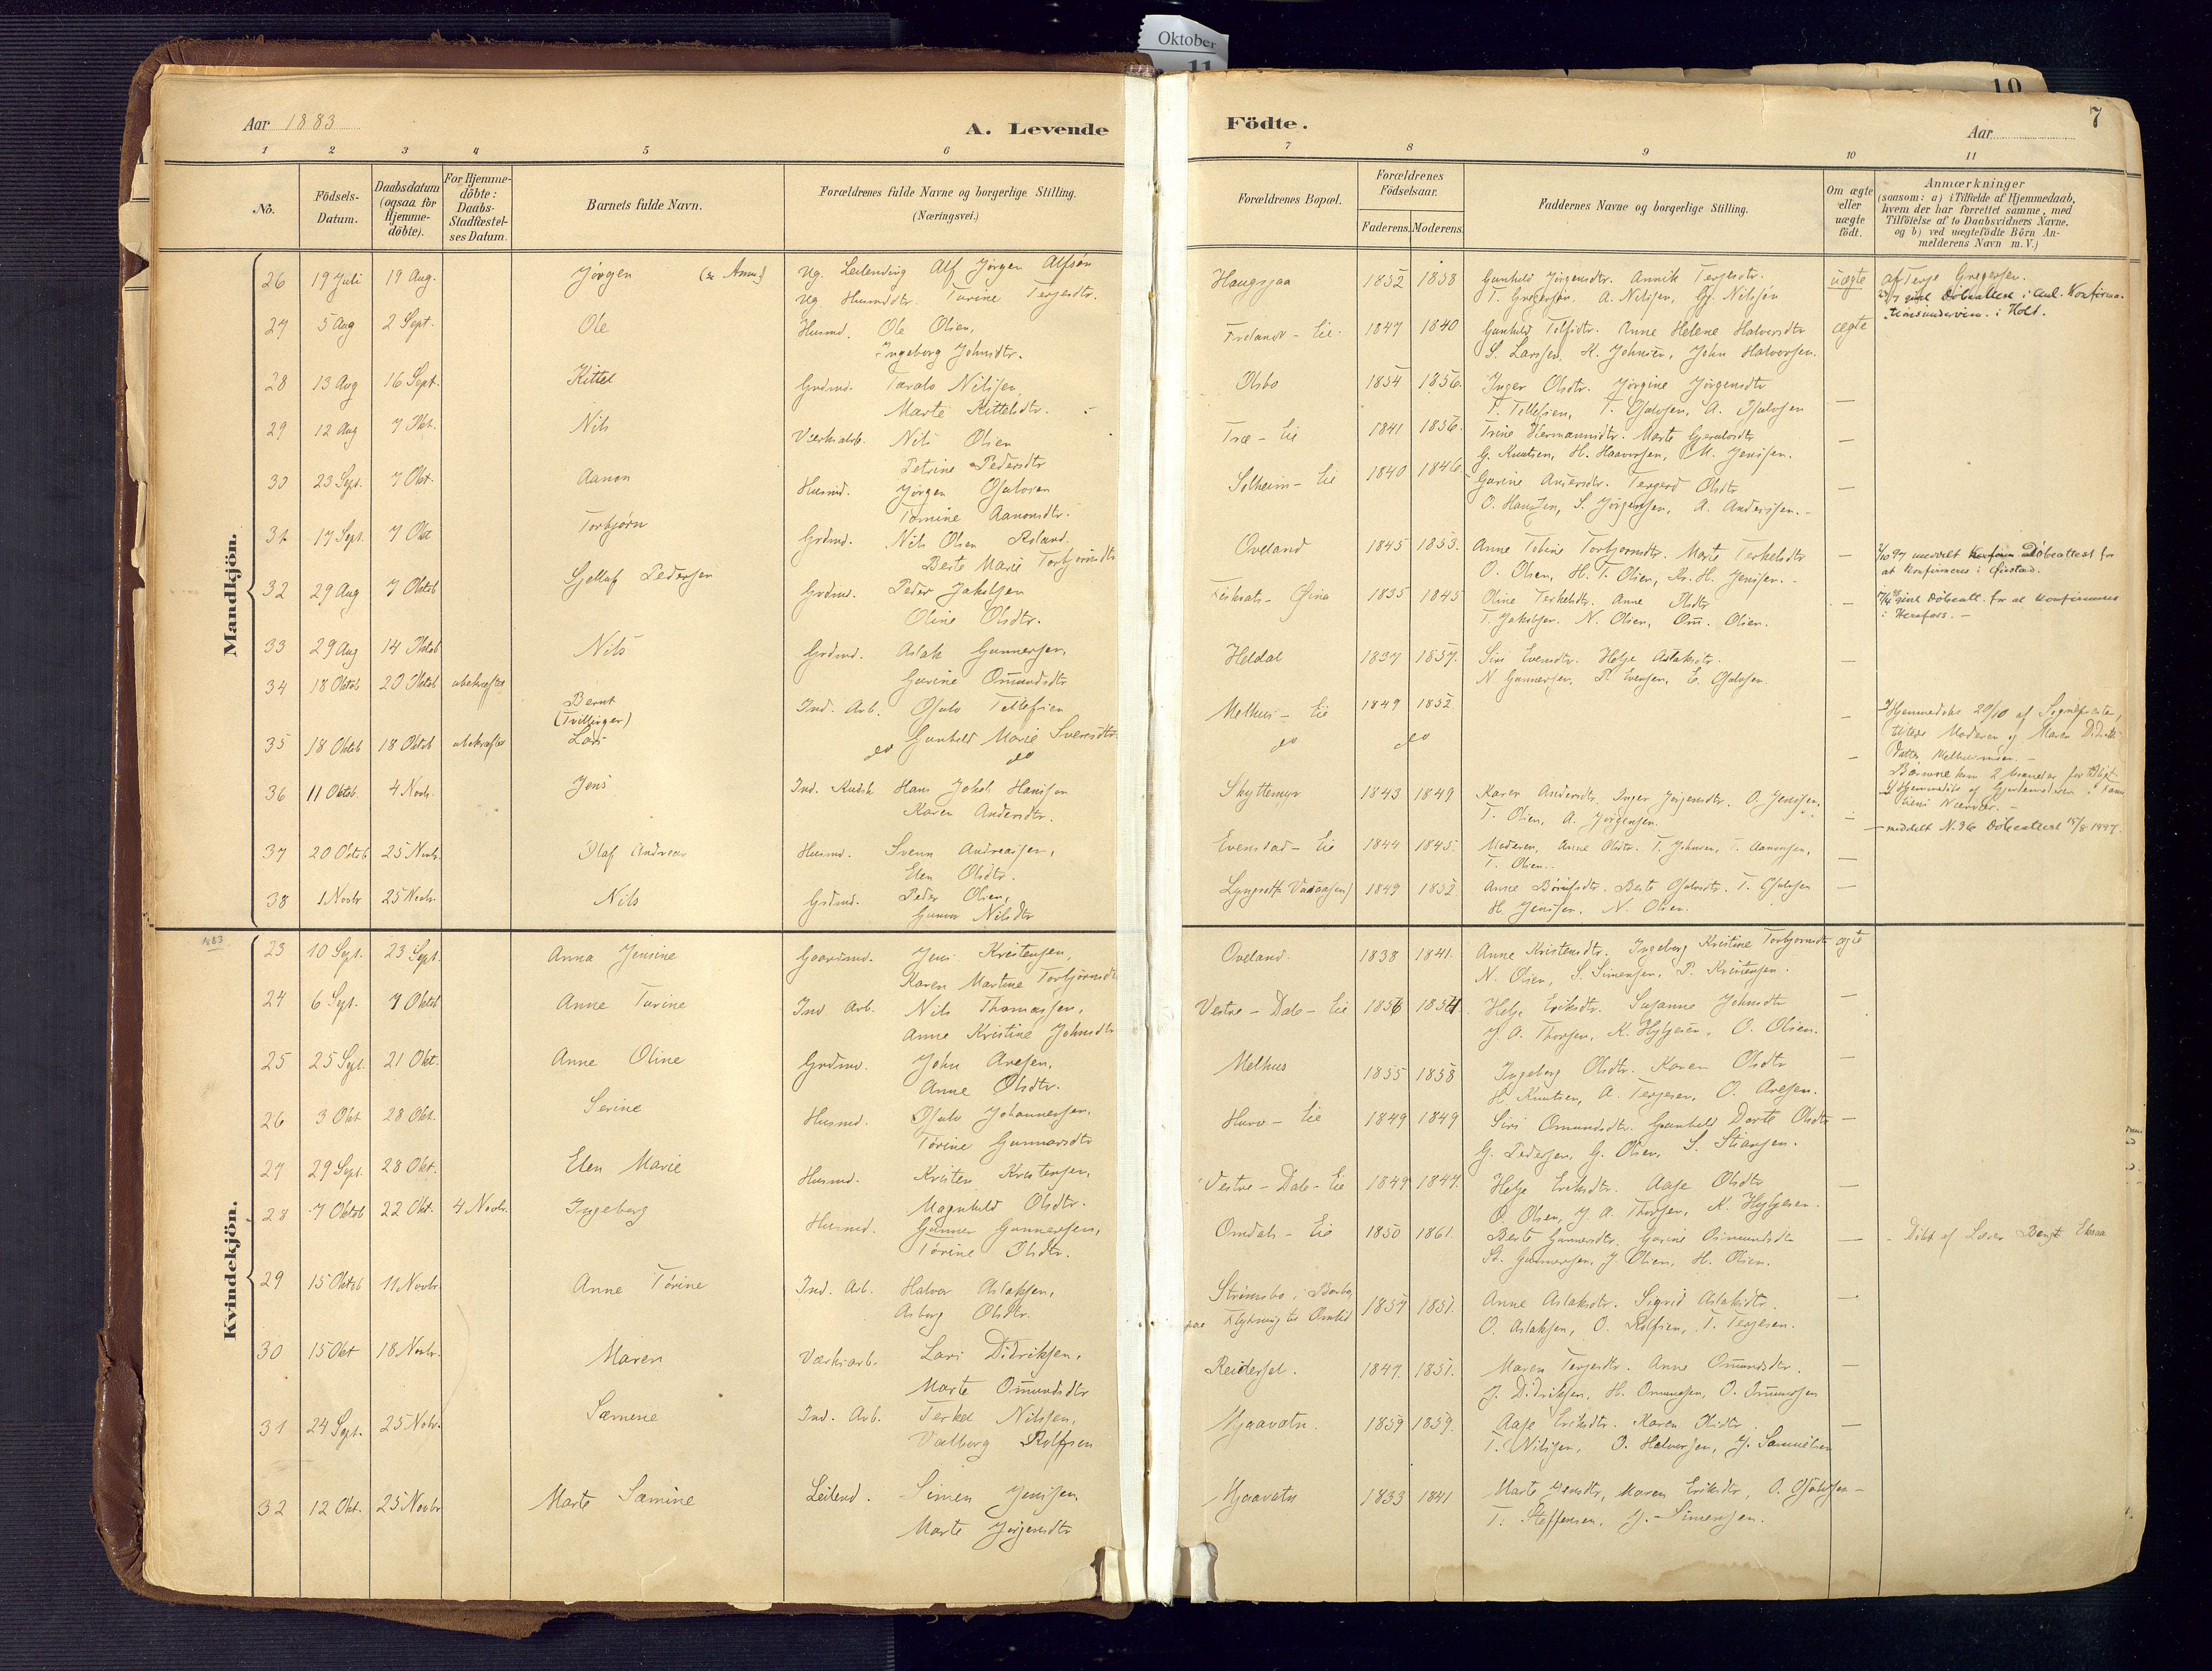 Oktober
11
10
7
Aar 1883
A. Levende
Födte.
Aar
1 2 3 4 5 6 7 8 9 10 11
No.
Födsels-Datum.
Daabsdatum (ogsaa for Hjemme-döbte).
For Hjemme-döbte: Daabs-Stadfæstel-ses Datum.
Barnets fulde Navn.
Forældrenes fulde Navne og borgerlige Stilling.
(Næringsvei.)
Forældrenes Bopæl.
Forældrenes Födselsaar.
Faderens. Moderens.
Faddernes Navne og borgerlige Stilling.
Om ægte eller uægte födt.
Anmærkninger
(saasom: a) i Tilfælde af Hjemmedaab,
hvem der har forrettet samme, med
Tilföielse af to Daabsvidners Navne.
og b) ved uægtefödte Börn An-
melderens Navn m. V.)
Mandkjön.
26 19 Juli 19 Aug. Jørgen (se Anm.) Ug. Leilending Alf Jørgen Alfsen Haugsjaa 1852 1858 Gunhild Jørgensdtr. Annik Terjesdtr. uægte af Terje Gregersen.
Ug. Husmdtr. Turine Terjesdtr. T. Gregersen, A. Nilsen, Gj. Nilsen
Døbeattest i Anl. Konfirma-
tionsundervisn. i Holt.
27 5 Aug 2 Sept. Ole Husmd. Ole Olsen, Eie 1847 1840 Gunhild Anne Helene Halvorsdtr ægte
Ingeborg Johnsdtr. S. Larssen, K. Johnsen, John Halvorsen.
28 13 Aug 16 Sept. Kittel Grdmd. Tarald Nilsen Olsbo 1854 1856. Inger Olsdtr. Jørgine Jørgensdtr —
Marte Kittelsdtr. T. Tellefsen, T. Osulvsen, A. Osulvsen
29 12 Aug 7 Okt. Nils Værksarb. Nils Olsen Træ - Eie 1841 1856. Trine Hermannsdtr. Marte —
Petrine Pedersdtr G. Knutsen, H. Haavorsen, M. Jensen.
30 23 Sept. 7 Okt. Aanon Husmd. Jørgen Osulvsen Solheim - Eie 1840 1846. Gurine Andersdtr. Tergerd Olsdtr —
Tomine Aanonsdtr. O. Hansen, S. Jørgensen, A. Andersen. -
31 17 Sept. 7 Okt Torbjørn Grdmd. Nils Olsen Oveland 1845 1853. Anne Tobine Torbjørnsdtr. Marte Terkelsdtr —
Berte Marie Torbjørnsdtr O. Olsen, H. T. Olsen, H. Jensen. -
Døbeattest for
at konfirmeres i
32 29 Aug 7 Oktob Gjelluf Pedersen Grdmd. Peder Jakobsen 1835 1845 Oline Terkelsdtr. Anne Olsdtr —
Oline Olsdtr. T. Jakobsen. N. Olsen, Om. Olsen.
Døbeatt. for at konfirmeres
i Herefoss. -
33 29 Aug 14 Oktob Nils Grdmd. Aslak Gunnersen, Heldal 1837 1837. Siri Evensdtr. Helje Aslaksdtr. —
Gurine Omundsdtr N. Gunnersen, P. Evensen, E. Osulvsen.
34 18 Oktob 20 Oktob ubekræftet Bernt Ind. Arb. Osulv Tellefsen Melhus - Eie 1849 1852 —
(Tvillinger) Gunhild Marie Sveresdtr.
35 18 Oktob 18 Oktob ubekræftet Lars do do do do —
36 11 Oktob. 4 Novbr. Jens Ind. Hans Jakob Hansen Skyttemyr 1843 1849 Karen Andersdtr. Inger Jørgensdtr. O. Jensen, —
Karen Andersdtr. T. Olsen, A. Jørgensen.
meddelt N. 36 Døbeattest 15/8 1897.
37 20 Oktob 25 Novbr. Olaf Andreas Husmd. Svenn Andreasen, Evenstad - Eie 1844 1845. Moderen, Anne Olsdtr. T. Johnsen, T. Aanonsen, —
Elen Olsdtr. T. Olsen.
38 1 Novbr 25 Novbr. Nils Grdmd. Peder Olsen, 1849 1852 Anne Berte Osulvsdtr. T. Osulvsen —
Gunvor Nilsdtr H. Jensen, N. Olsen.
1883
Kvindekjön.
23 10 Sept. 23 Sept. Anna Jensine Gaardmd. Jens Kristensen, Oveland. 1838 1841. Anne Kristensdtr. Ingeborg Kristine Torbjørnsdtr ægte
Karen Martine Torbjørnsdtr N. Olsen, S. Simensen, P. Kristensen.
24 6 Sept. 7 Oktob Anne Turine Ind. Arb. Nils Thomassen, Vestre - Dale - Eie 1856 1854. Helje Eriksdtr. Susanne Johnsdtr —
Anne Kristine Johnsdtr J. A. Thorsen, K. Hylgesen, O. Olsen.
25 25 Sept. 21 Okt. Anne Oline Grdmd. John Aresen, Melhus 1855 1858 Ingeborg Olsdtr. Karen Olsdtr —
Anne Olsdtr. H. Knutsen, A. Terjesen, O. Aresen.
26 3 Okt 28 Okt. Serine Husmd. Osulv Johannessen, Eie 1849 1849 Siri Omundsdtr. Gunhild Dorte Olsdtr —
Torine Gunnersdtr G. Pedersen, G. Olsen, S. Stiansen.
27 29 Sept. 28 Okt. Elen Marie Husmd. Kristen Kristensen, Vestre - Dale - Eie 1849 1847. Helje Eriksdtr. Aase Olsdtr —
Magnhild Olsdtr. O. Olsen, J. A. Thorsen, K. Hylgesen.
28 7 Oktob 22 Okt. 4 Novbr. Ingeborg Husmd. Gunner Gunnersen, Omdals - Eie 1850 1861. Berte Gunnersdtr. Gurine Osmundsdtr — Døbt af Lærer Bengt
Torine Olsdtr. Gunnersen, J. Olsen, H. Olsen.
29 15 Oktob 11 Novbr. Anne Torine Ind. Arb. Halvor Aslaksen, Strømsbo i 1857 1851. Anne Aslaksdtr. Sigrid Aslaksdtr. —
Asborg Olsdtr. paa Flytning til Omlid O. Aslaksen, O. Rolfsen, T. Terjesen.
30 15 Okt 18 Novbr. Maren Værksarb. Lars Didriksen, Reidersel. 1847. 1851. Maren Terjesdtr. Anne Omundsdtr. —
Marte Omundsdtr J. Didriksen, H. Omundsen, O. Omundsen
31 24 Sept. 25 Novbr. Sæmene Ind. Arb. Terkel Nilssen, Mjaavatn 1859 1859. Aase Eriksdtr. Karen Olsdtr —
Valborg Rolfsen T. Nilsen, O. Halvorsen, J. Samuelsen
32 12 Okt. 25 Novbr Marte Sæmine Leilend. Simen Jensen, Mjaavatn 1833 1841 Marte Jensdtr, Maren Eriksdtr, O. Osulvsen —
Marte Jørgensdtr T. Steffensen, J. Simensen.